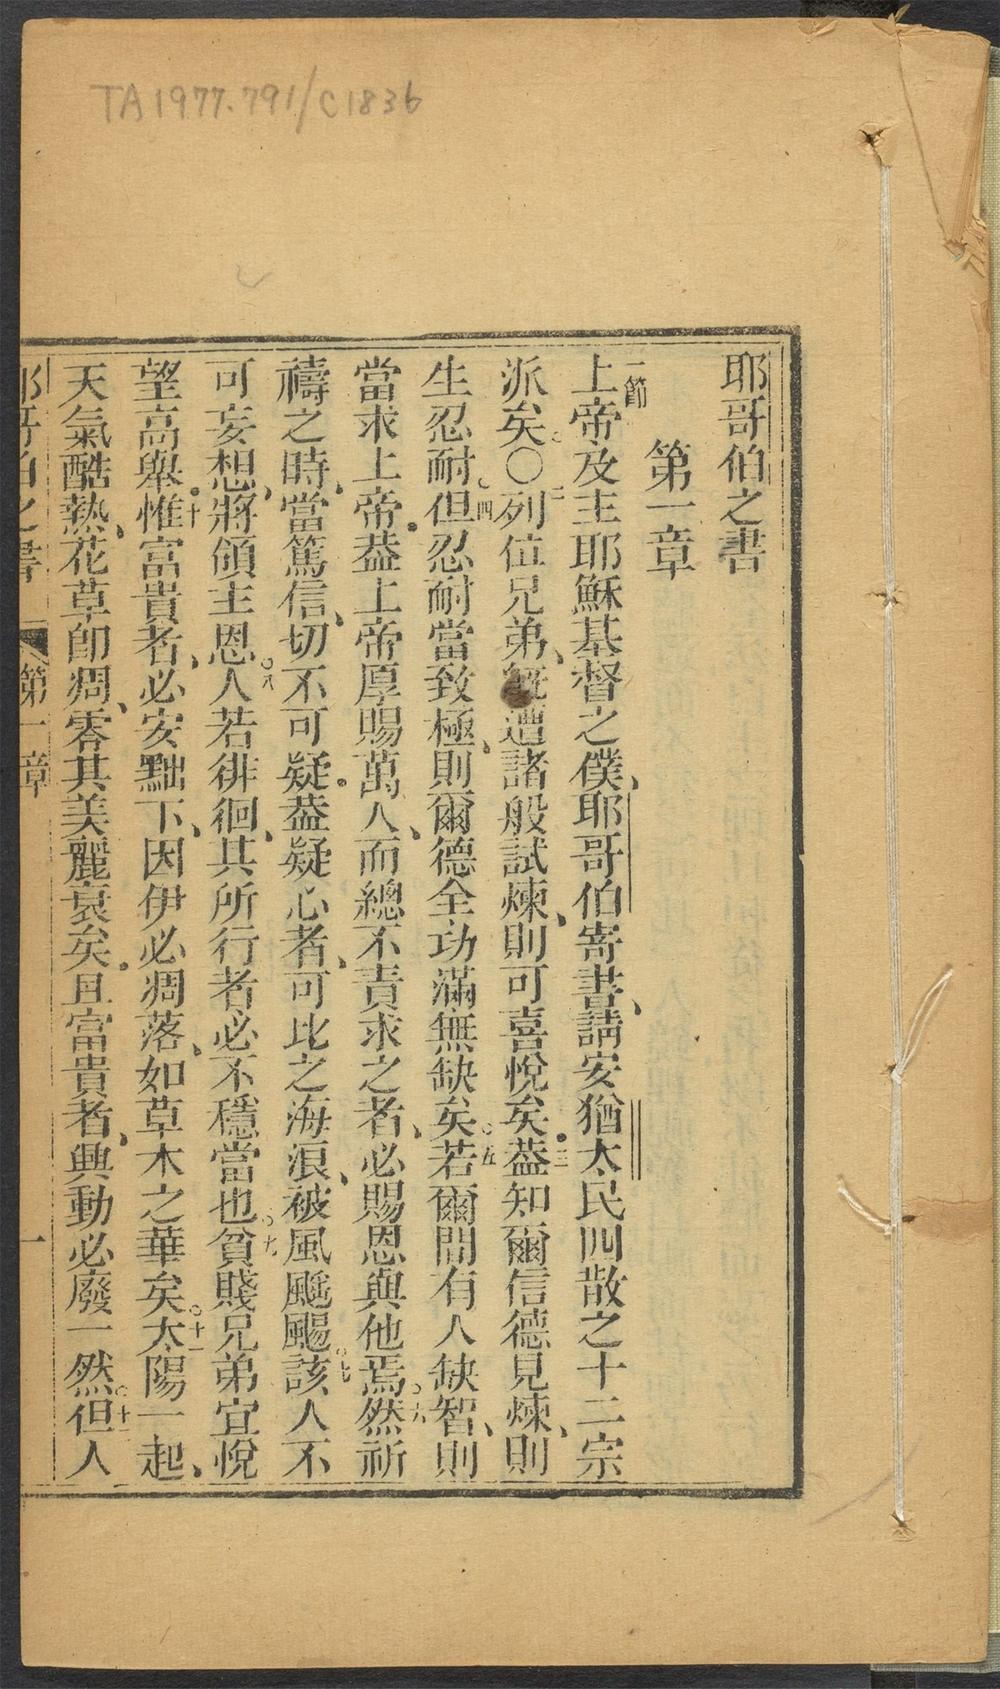 TA 1977.791/C1836
耶哥伯之書
第一章
一節
上帝及主耶穌基督之僕、耶哥伯寄書、請安猶太民四散之十二宗
派矣○二列位兄弟、既遭諸般試煉、則可喜悅矣。三葢知爾信德見煉、則
生忍耐。四但忍耐當致極、則爾德全功滿無缺矣。五若爾間有人缺智、則
當求上帝。葢上帝厚賜萬人、而總不責求之者、必賜恩與他焉。六然祈
禱之時、當篤信、切不可疑。葢疑心者、可比之海浪、被風颻颺。七該人不
可妄想、將領主恩。八人若徘徊、其所行者必不穩當也。九貧賤兄弟宜悅
望高舉。十惟富貴者、必安黜下、因伊必凋落、如草木之華矣。十一太陽一起、
天氣酷熱、花草卽凋零、其美麗衰矣。且富貴者、興動必廢一然。十二但人
耶哥伯之書 第一章 一